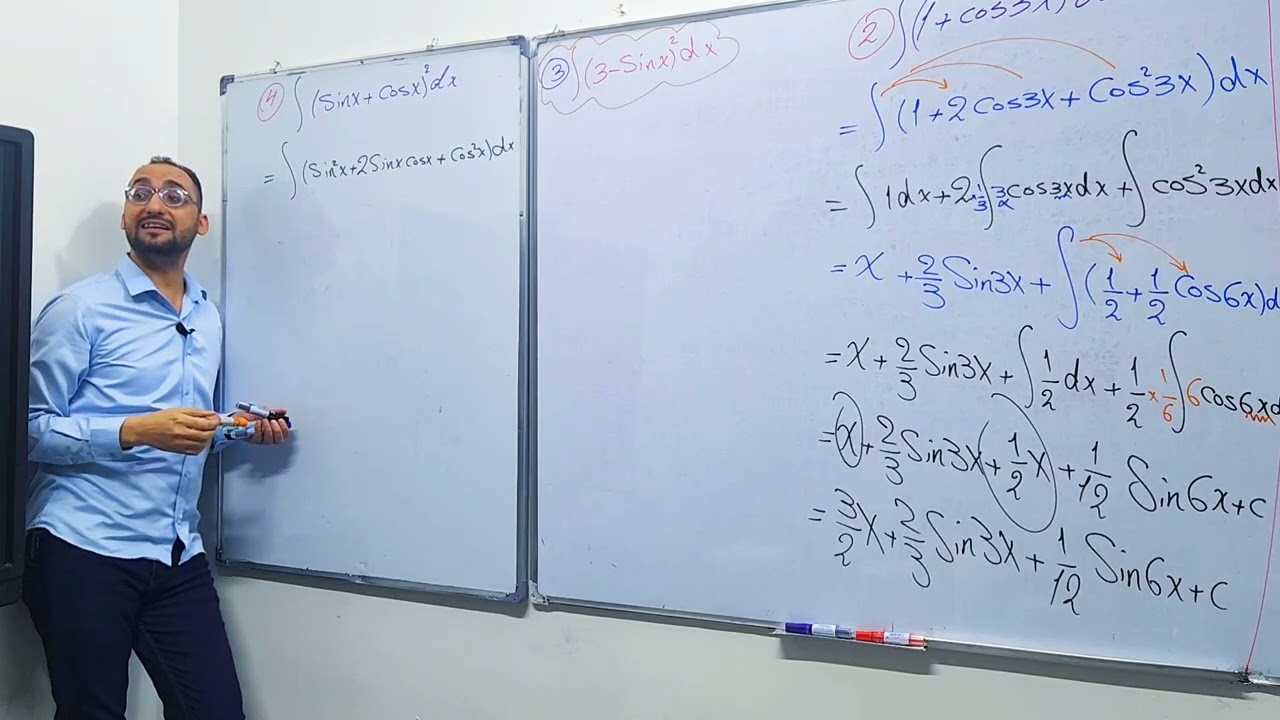 ④ ∫ (Sinx + Cosx)² dx
= ∫ (Sin²x + 2 Sinx cosx + Cos²x) dx
③ ∫ (3 - Sinx)² dx
② ∫ (1 + Cos3x)
= ∫ (1 + 2 Cos3x + Cos²3x) dx
= ∫ 1 dx + 2 × 1/3 ∫ 3 cos3x dx + ∫ cos²3x dx
= x + 2/3 Sin3x + ∫ (1/2 + 1/2 Cos6x) d
= x + 2/3 Sin3x + ∫ 1/2 dx + 1/2 × 1/6 ∫ 6 cos6x d
= x + 2/3 Sin3x + 1/2 x + 1/12 Sin6x + c
= 3/2 x + 2/3 Sin3x + 1/12 Sin6x + c